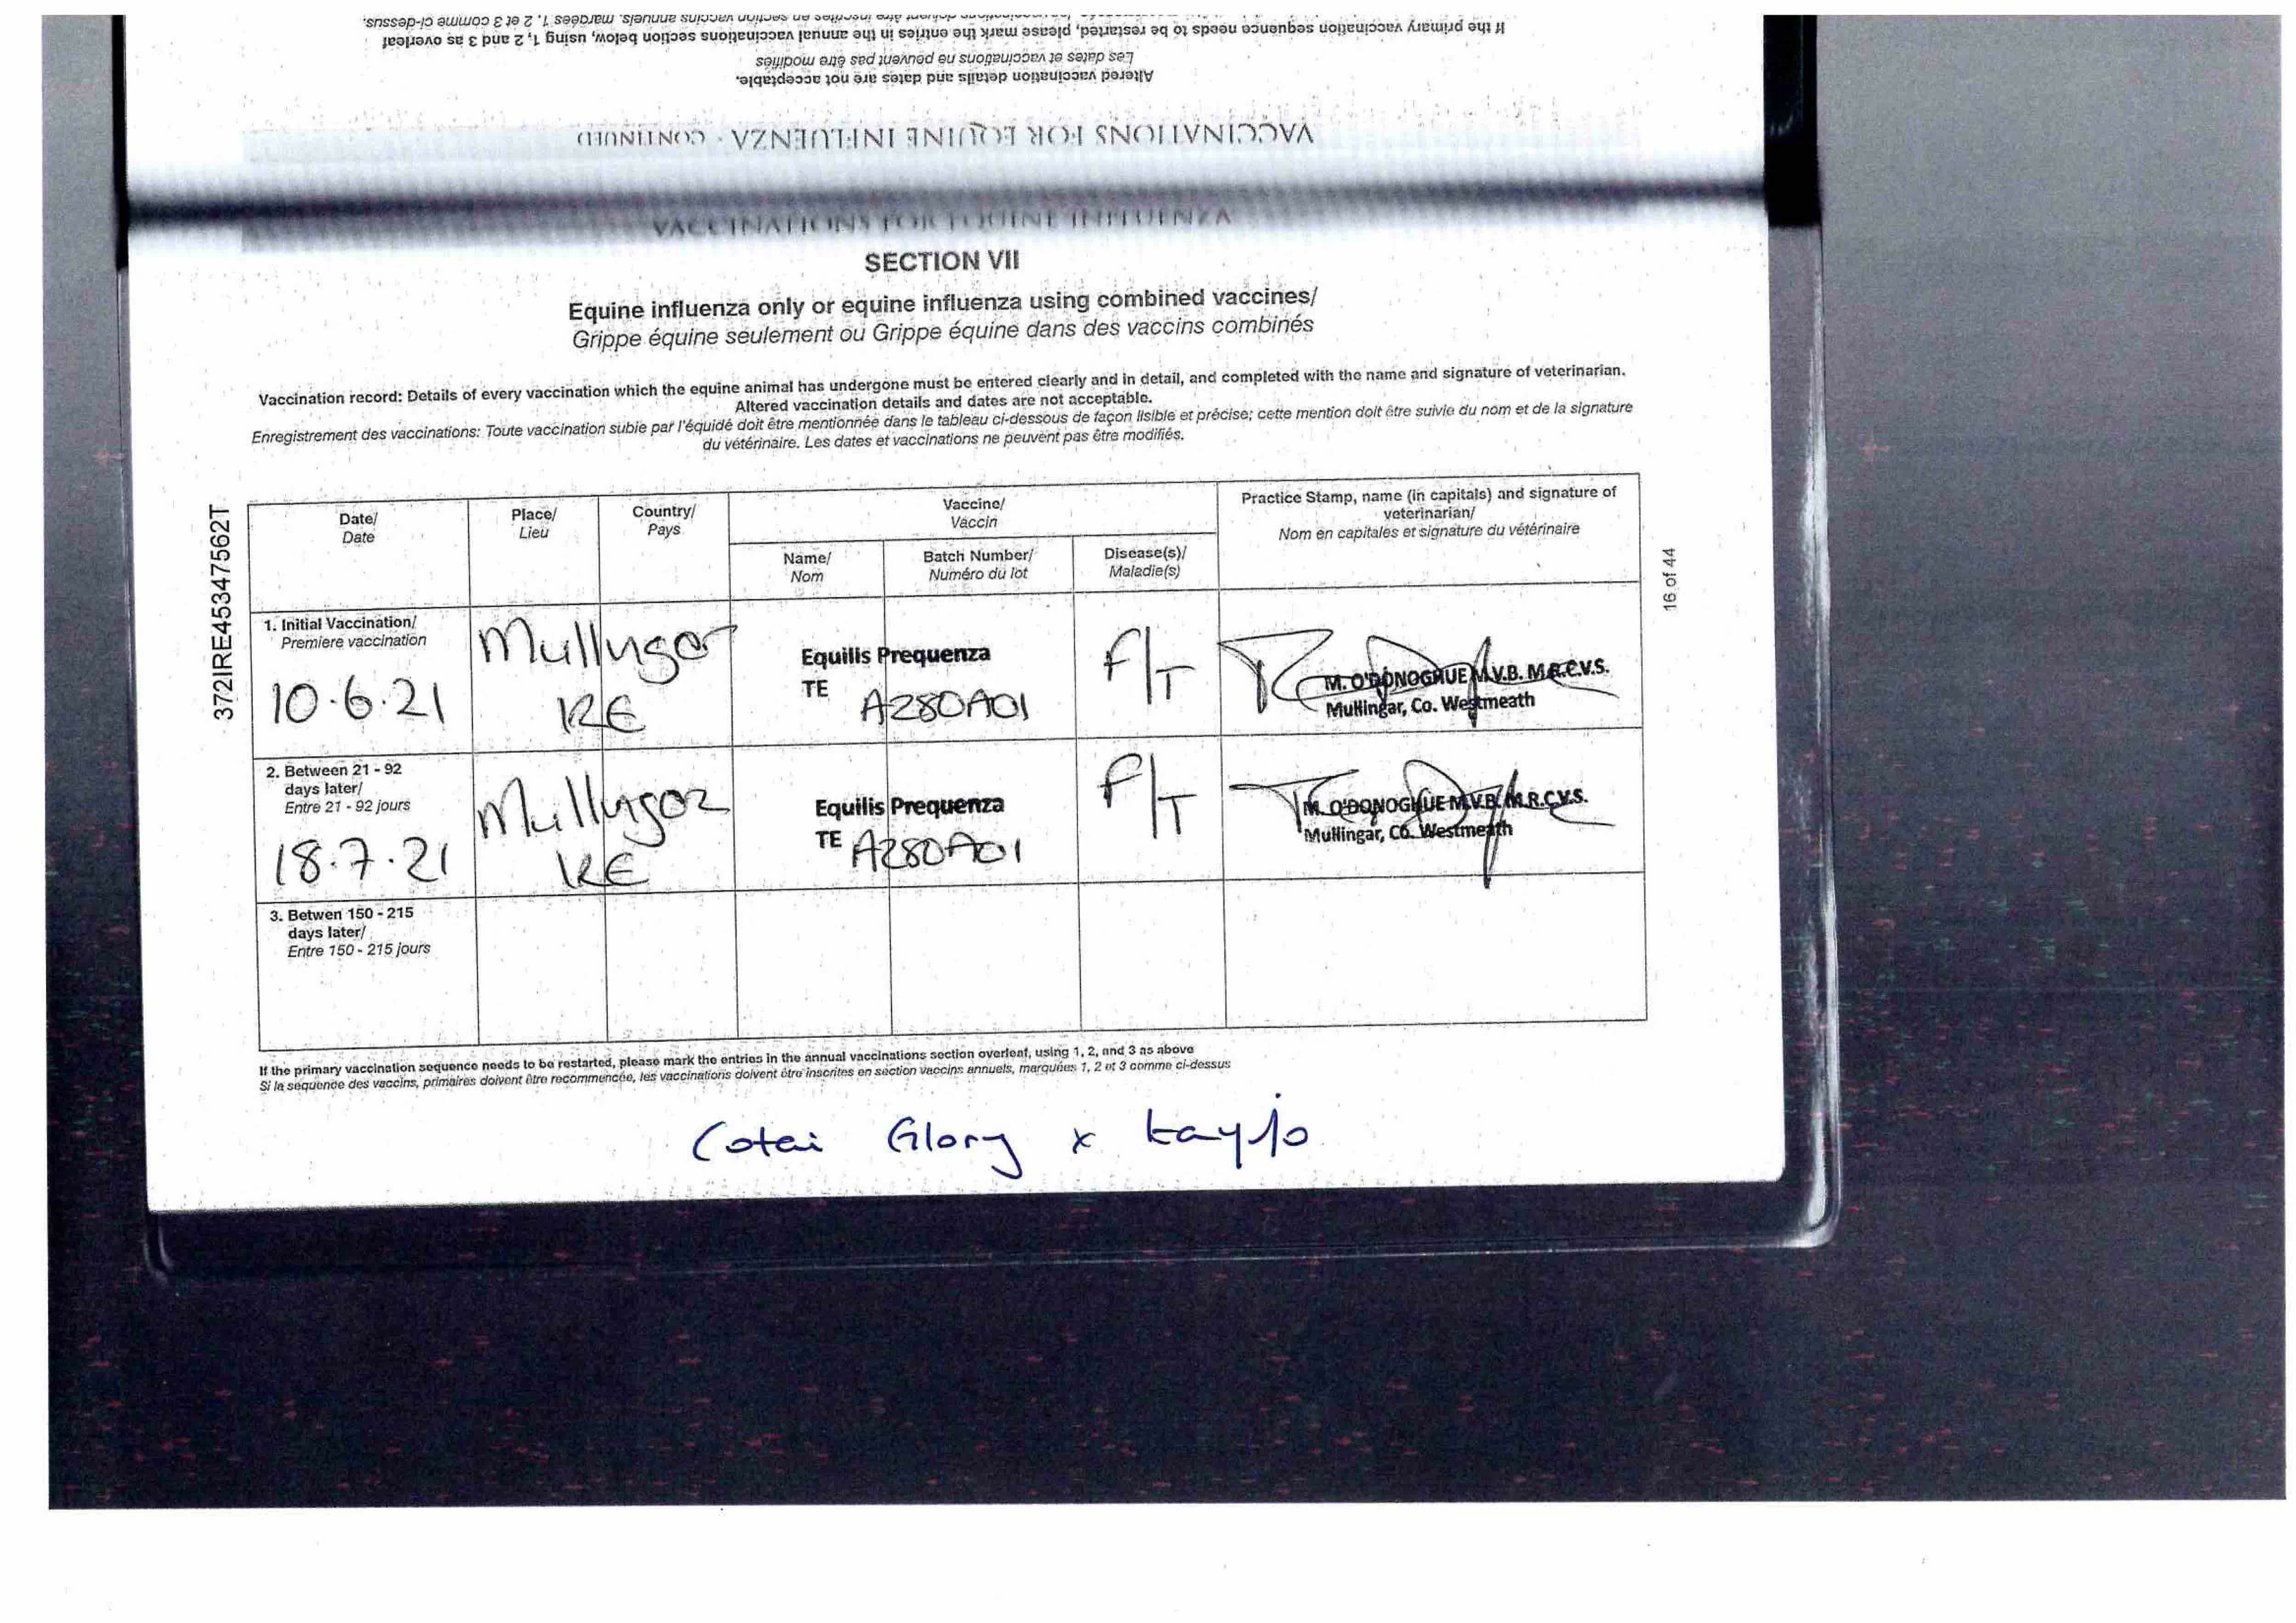 If the primary vaccination sequence needs to be restarted, please mark the entries in the annual vaccinations section below, using 1, 2 and 3 as overleaf
section vaccins annuels, marquées 1, 2 et 3 comme ci-dessus.
Altered vaccination details and dates are not acceptable.
Les dates et vaccinations ne peuvent pas être modifiés
VACCINATIONS FOR EQUINE INFLUENZA - CONTINUED
VACCINATIONS FOR EQUINE INFLUENZA
SECTION VII
Equine influenza only or equine influenza using combined vaccines/
Grippe équine seulement ou Grippe équine dans des vaccins combinés
Vaccination record: Details of every vaccination which the equine animal has undergone must be entered clearly and in detail, and completed with the name and signature of veterinarian.
Altered vaccination details and dates are not acceptable.
Enregistrement des vaccinations: Toute vaccination subie par l'équidé doit être mentionnée dans le tableau ci-dessous de façon lisible et précise; cette mention doit être suivie du nom et de la signature
du vétérinaire. Les dates et vaccinations ne peuvent pas être modifiés.
372IRE45347562T
16 of 44
Date/
Date
Place/
Lieu
Country/
Pays
Vaccine/
Vaccin
Name/
Nom
Batch Number/
Numéro du lot
Disease(s)/
Maladie(s)
Practice Stamp, name (in capitals) and signature of
veterinarian/
Nom en capitales et signature du vétérinaire
1. Initial Vaccination/
Premiere vaccination
10.6.21
Mullingar
IRE
Equilis Prequenza
TE
A280A01
F/T
M. O'DONOGHUE M.V.B. M.R.C.V.S.
Mullingar, Co. Westmeath
2. Between 21 - 92
days later/
Entre 21 - 92 jours
18.7.21
Mullingar
IRE
Equilis Prequenza
TE
A280A01
F/T
M. O'DONOGHUE M.V.B. M.R.C.V.S.
Mullingar, Co. Westmeath
3. Betwen 150 - 215
days later/
Entre 150 - 215 jours
If the primary vaccination sequence needs to be restarted, please mark the entries in the annual vaccinations section overleaf, using 1, 2, and 3 as above
Si la sequence des vaccins, primaires doivent être recommencée, les vaccinations doivent être inscrites en section vaccins annuels, marquées 1, 2 et 3 comme ci-dessus
Cotai Glory x Kayjo